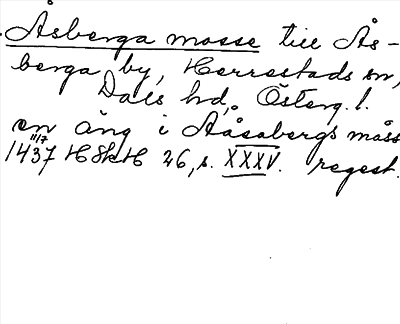 Åsberga mosse till Ås-
berga by, Herrestads sn,
Dals hd, Österg. l.
en äng i Aåsabergs måss
11/7
1437 HSkH 26, s. XXXV. regest.